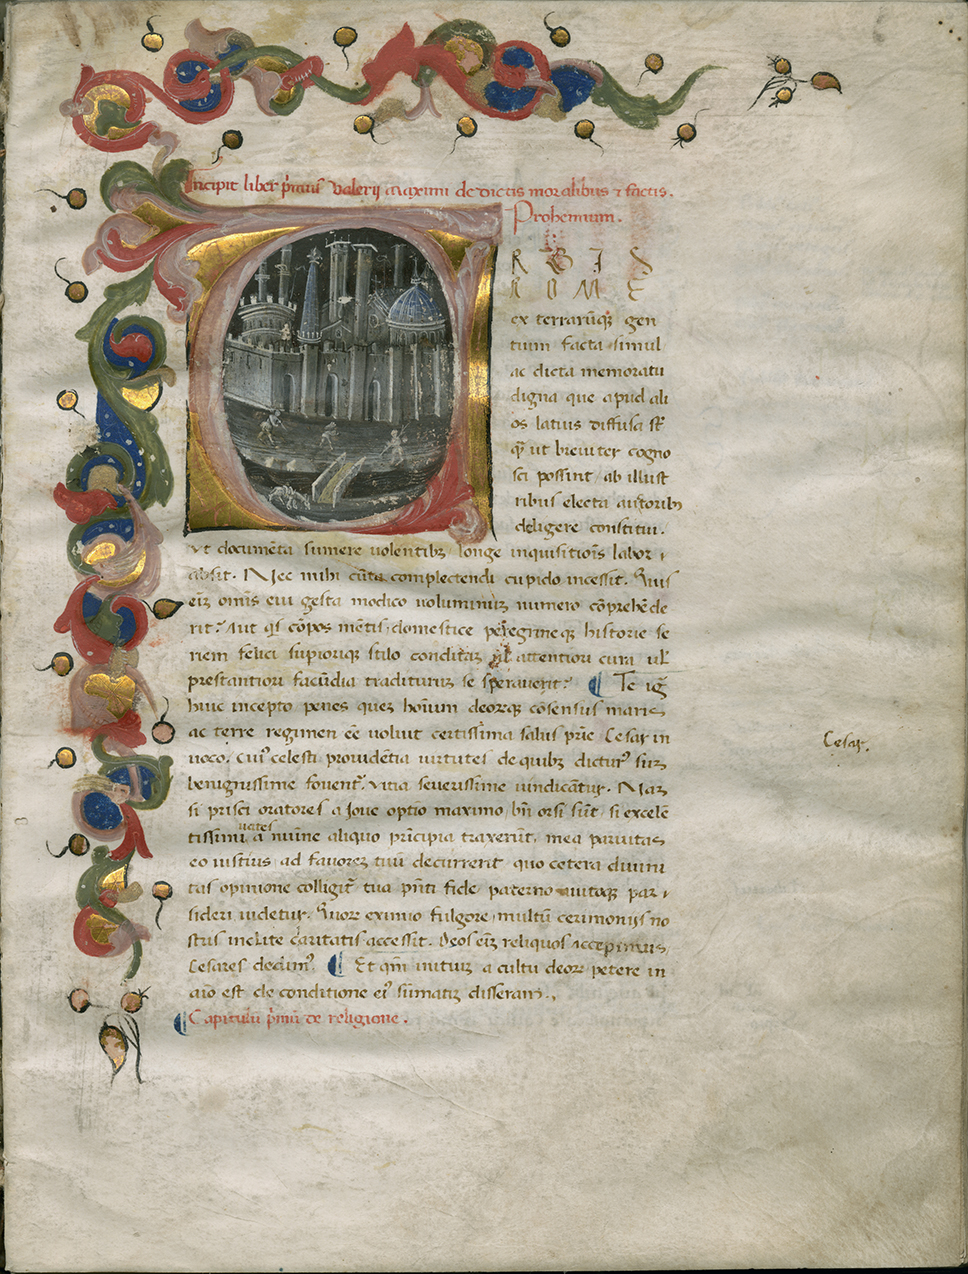 Incipit liber p̄mus Valerij maximi de dictis moralibus ⁊ factis.
Prohemium.
RBIS
ROME
ex terrarūqꝫ gen
tium facta simul
ac dicta memoratu
digna que apud ali
os latius diffusa st̄
qꝫ ut breuiter cogno
sci possint ab illust
ribus electa autoribꝫ
deligere constitui.
Vt documēta sumere uolentibꝫ longe inquisitiōis labor
absit. Nec mihi cūta complectendi cupido incessit. Quis
eīꝫ omīs eui gesta modico uoluminuꝫ numero cōprehēde
rit? Aut qͥs cōpos mētis domestice peregrineqꝫ historie se
riem felici supiorūqꝫ stilo conditaꝫ ul̄ attentiori cura ul̄
prestantiori facūdia tradituruꝫ se sperauerit? ¶ Te ig̃
huic incepto penes queꝫ hoīum deorqꝫ cōsensus maris
ac terre regimen eē uoluit certissima salus pr̄ie Cesar in
uoco. Cuiꝰ celesti prouidētia uirtutes de quibꝫ dicturꝰ suꝫ
benignissime fouent᷑. Vitia seuerissime uindicātur. Naꝫ
si prisci oratores a Ioue optīo maximo bn̄ orsi sūt, si excelē
tissimi uates a nuīne aliquo prīcipia traxerūt, mea paruitas
eo iustius ad fauoreꝫ tuū decurrerit quo cetera diuini
tas opinione colligit᷑ tua pn̄ti fide paterno auitoqꝫ par
sideri uidetur. Quor eximio fulgore multū cerimonijs no
stris inclite caritatis accessit. Deos eīꝫ reliquos accepimus,
Cesares dedimꝰ. ¶ Et qm̄ initiuꝫ a cultu deor petere in
aīo est de conditione eiꝰ sūmatiꝫ disseram.,
¶ Capitulū p̄mū de religione.
Cesar.